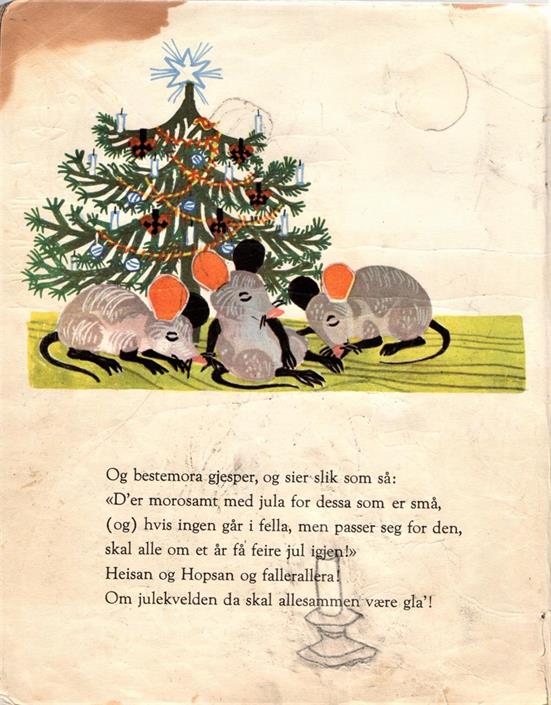 Og bestemora gjesper, og sier slik som så:
«D'er morosamt med jula for dessa som er små,
(og) hvis ingen går i fella, men passer seg for den,
skal alle om et år få feire jul igjen!»
Heisan og Hopsan og fallerallera!
Om julekvelden da skal allesammen være gla'!